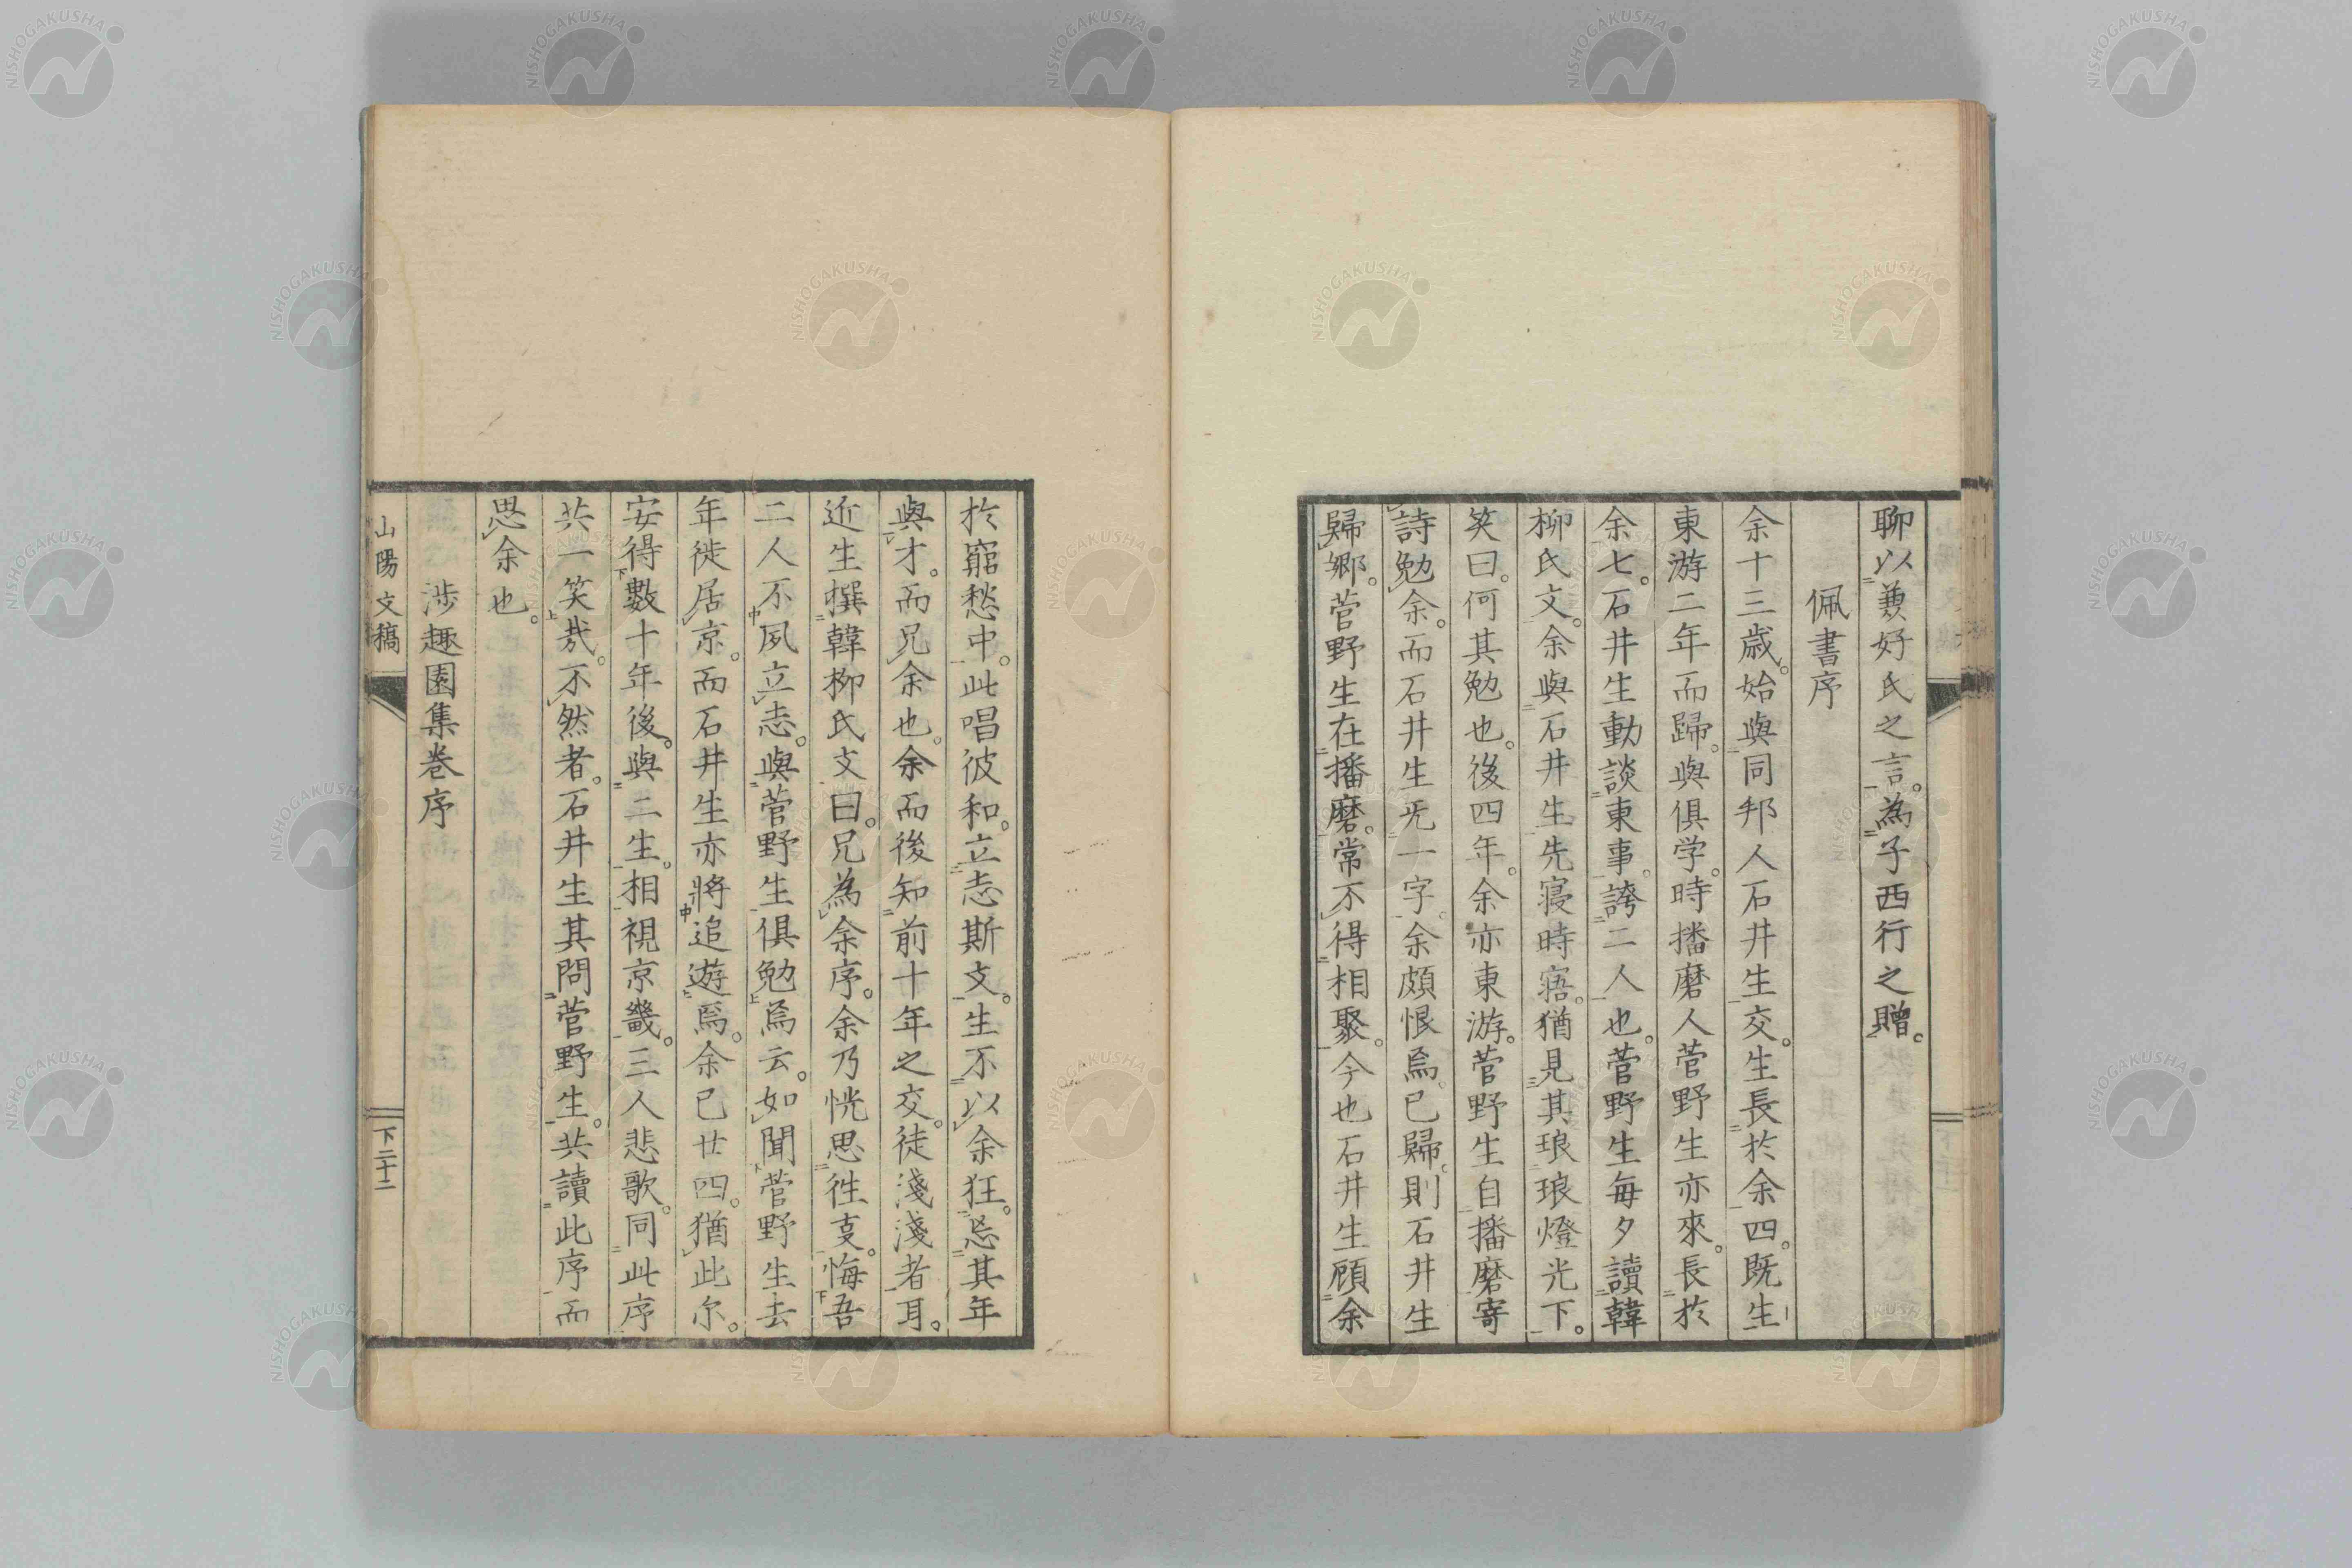 聊以兼好氏之言。為子西行之贈。
佩書序
余十三歳。始與同邦人石井生交。生長於余四。既生
東游二年而歸。與俱学。時播磨人菅野生亦來。長於
余七。石井生動談東事。誇二人也。菅野生毎夕讀韓
柳氏文。余與石井生先寝時寤。猶見其琅琅燈光下。
笑曰。何其勉也。後四年。余亦東游。菅野生自播磨寄
詩勉余。而石井生旡一字。余頗恨焉。已歸。則石井生
歸郷。菅野生在播磨。常不得相聚。今也石井生顧余
於窮愁中。此唱彼和。立志斯文。生不以余狂。忘其年
與才。而兄余也。余而後知前十年之交。徒淺淺者耳。
近生撰韓柳氏文曰。兄為余序。余乃恍思徃支。悔吾
二人不夙立志。與菅野生俱勉焉云。如聞菅野生去
年徙居京。而石井生亦將追遊焉。余已廿四。猶此尓。
安得數十年後。與二生。相視京畿。三人悲歌。同此序
共一笑哉。不然者。石井生其問菅野生。共讀此序而
思余也。
渉趣園集巻序
山陽文稿
下二十二